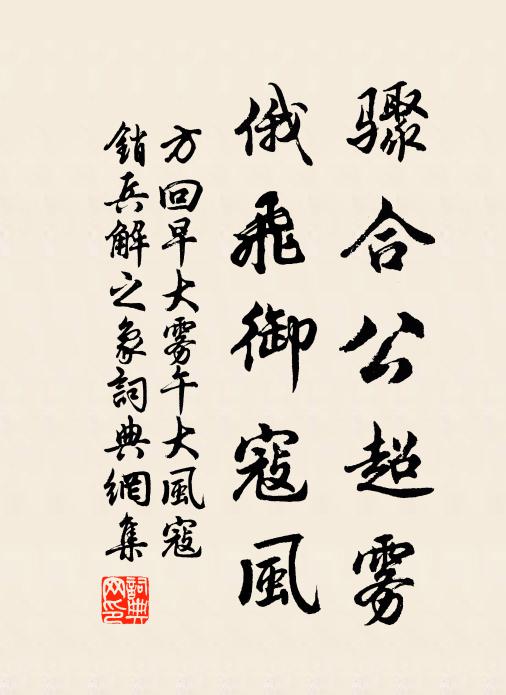 驟合公超雾
俄飛御寇風
方回早大雾午大風寇
銷兵解之象詞典網集
詞典网印